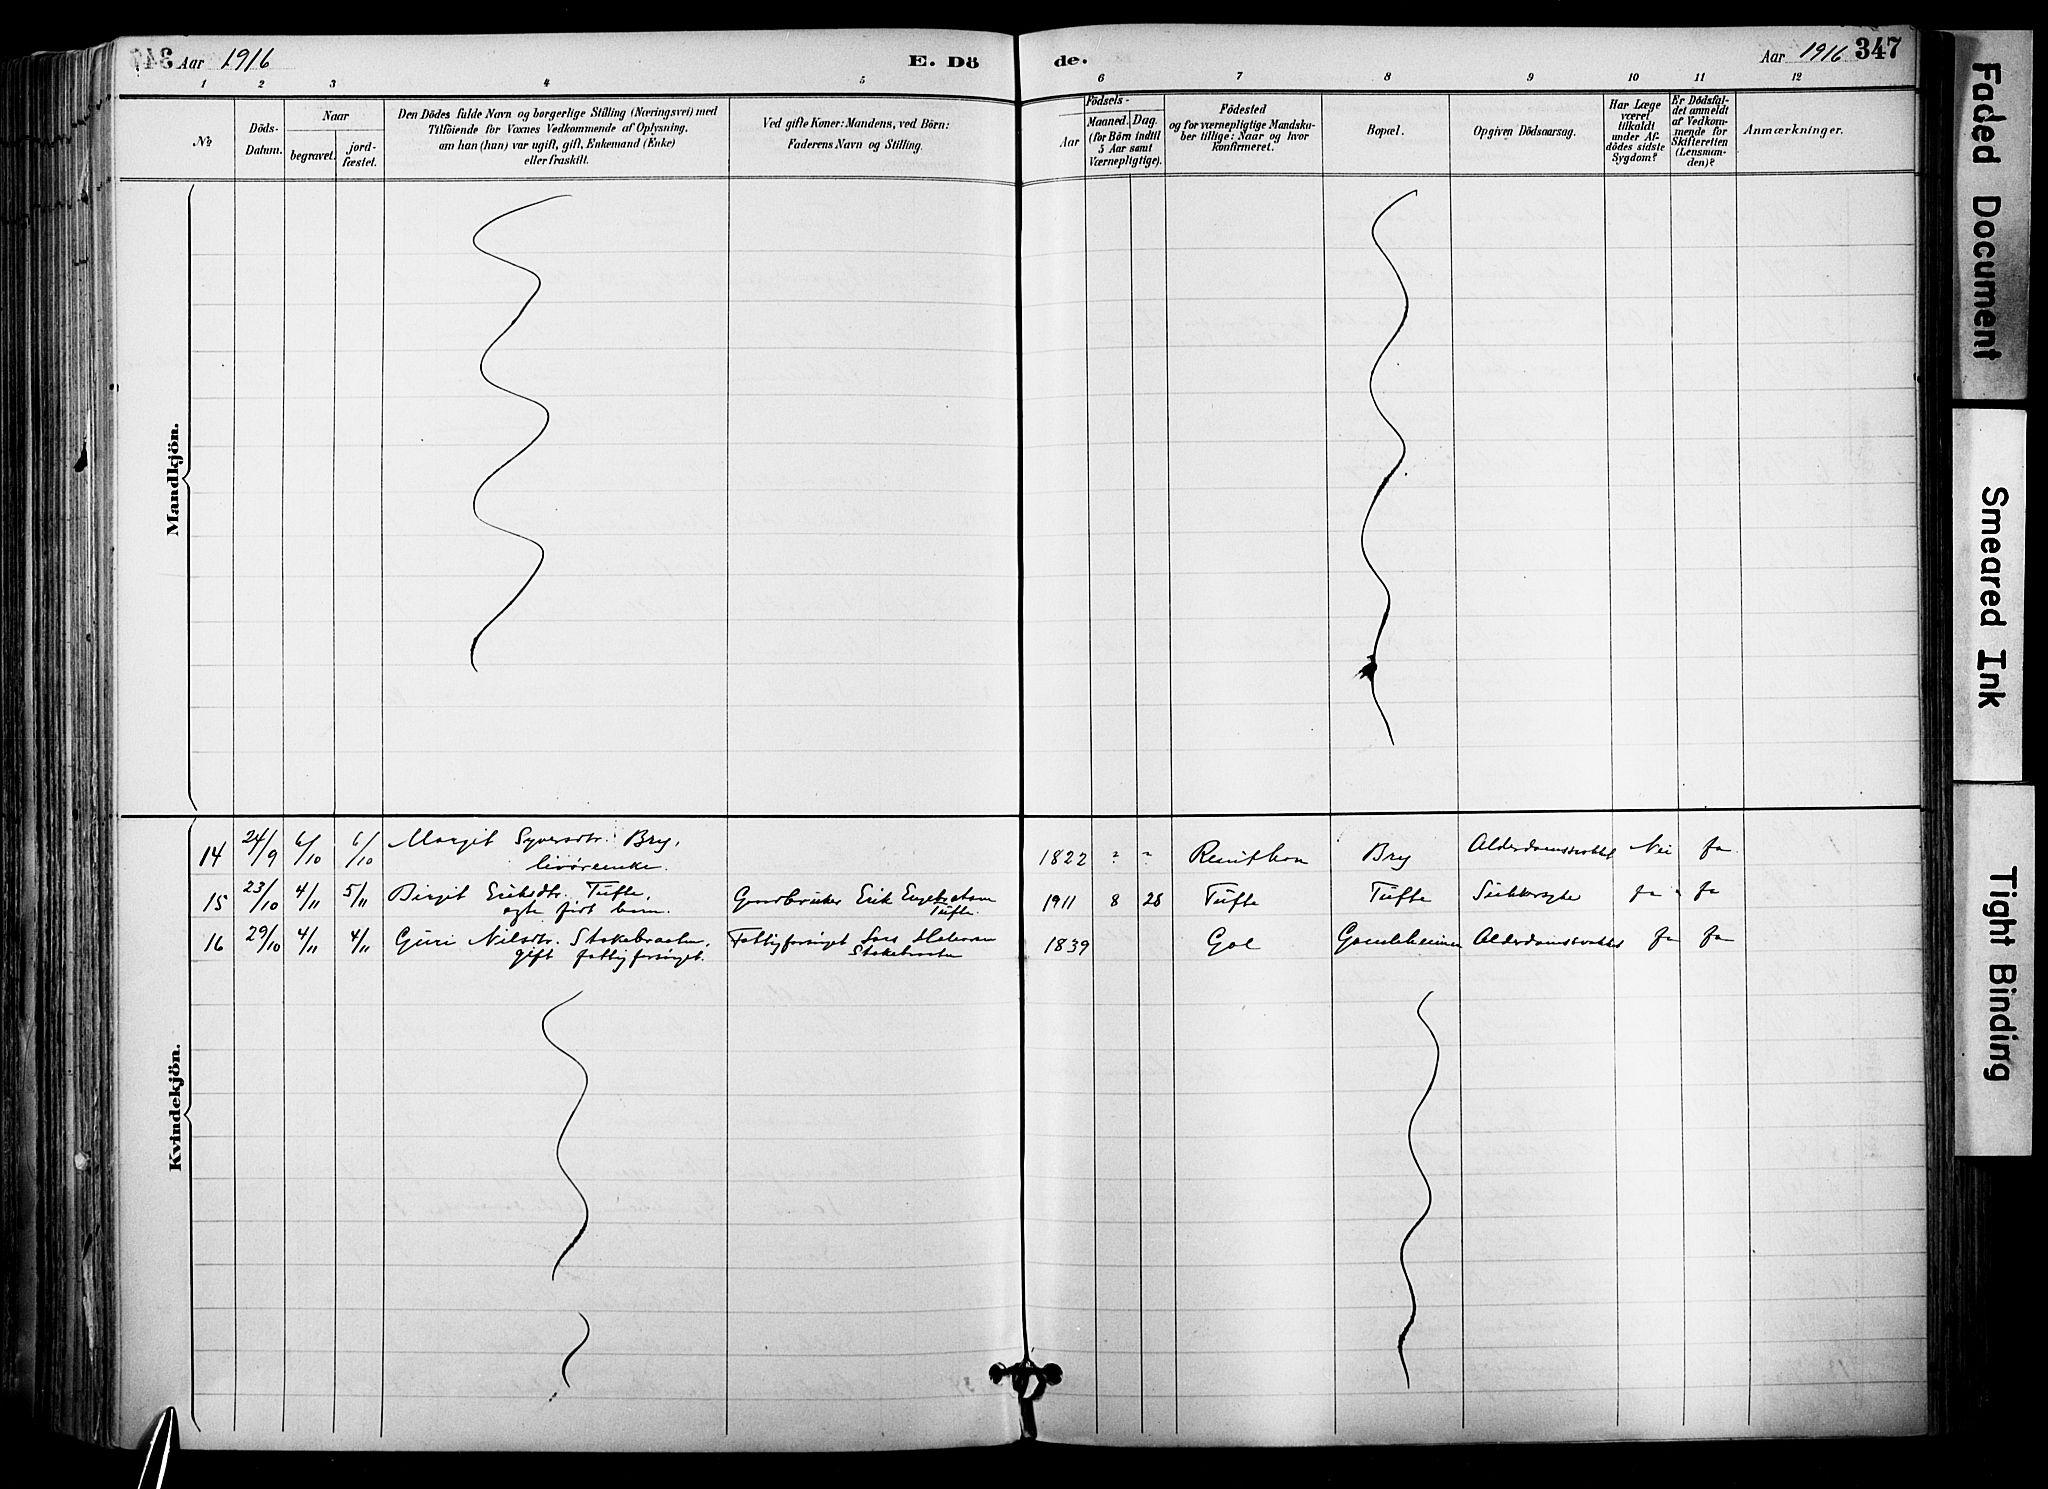 Aar 1916
E. Dö
de.
Aar 1916 347
1 2 3 4 5 6 7 8 9 10 11 12
№
Döds-Datum.
Naar
begravet.
jord-fæstet.
Den Dödes fulde Navn og borgerlige Stilling (Næringsvei) med
Tilföiende for Voxnes Vedkommende af Oplysning,
om han (hun) var ugift, gift, Enkemand (Enke)
eller fraskilt.
Ved gifte Koner: Mandens, ved Börn:
Faderens Navn og Stilling.
Födsels-
Aar
Maaned. Dag.
(for Börn indtil
5 Aar samt
Værnepligtige).
Födested
og for værnepligtige Mandska-
ber tillige: Naar og hvor
konfirmeret.
Bopæl.
Opgiven Dödsaarsag.
Har Læge
været
tilkaldt
under Af-
dödes sidste
Sygdom?
Er Dödsfal-
det anmeldt
af Vedkom-
mende for
Skifteretten
(Lensman-
den)?
Anmærkninger.
Mandkjön.
Kvindekjön.
14 24/9 6/10 6/10 Margit Syversdtr. Bry, 1822 " " Bry Nei ja
15 23/10 4/11 5/11 Birgit Eriksdtr. Tufte, Gaardbruker Erik 1911 8 28 Tufte Tufte ja ja
egte født barn. Tufte
16 29/10 4/11 4/11 Guri Nilsdtr. Fattigforsørget 1839 Gol ja ja
gift fattigforsørget.
Faded Document
Smeared Ink
Tight Binding